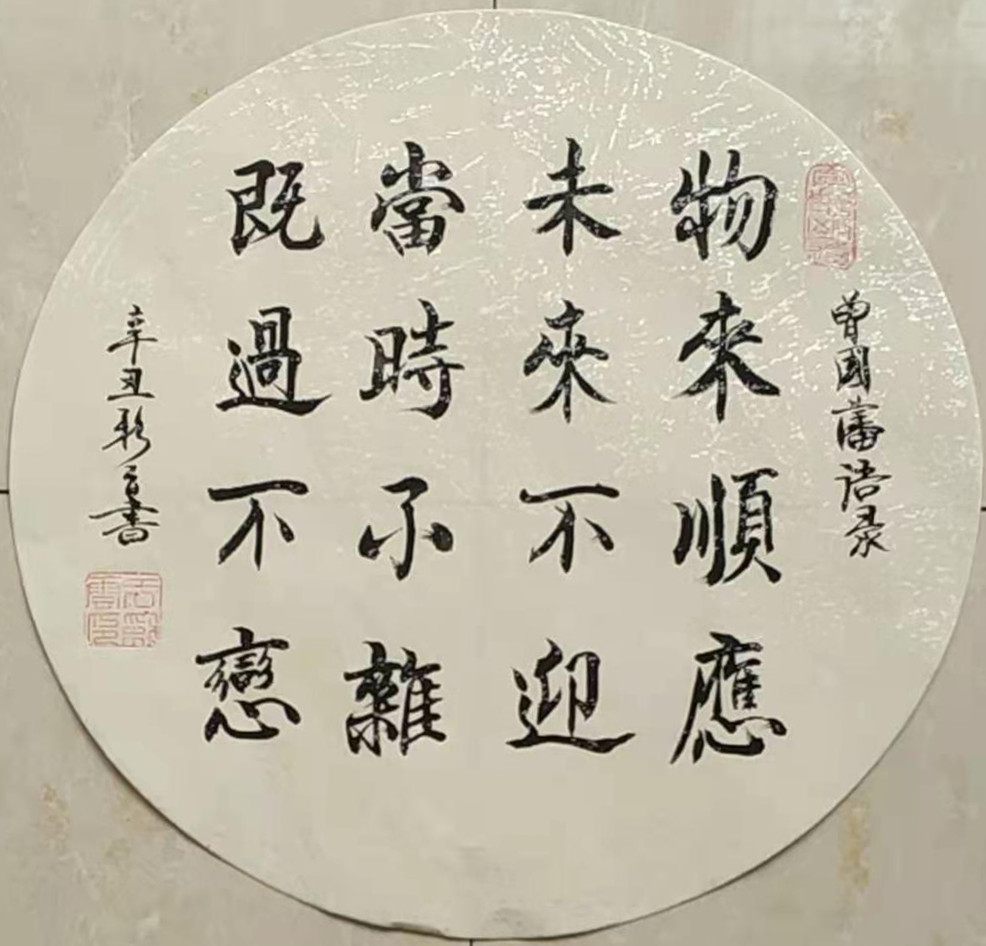 曾國藩语录
物來順應
未來不迎
當時不雜
既過不戀
辛丑彩云書